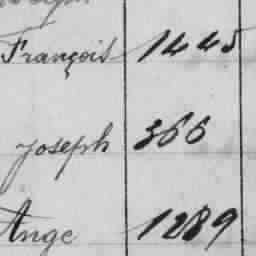 François 1445
Joseph 366
Ange 1289